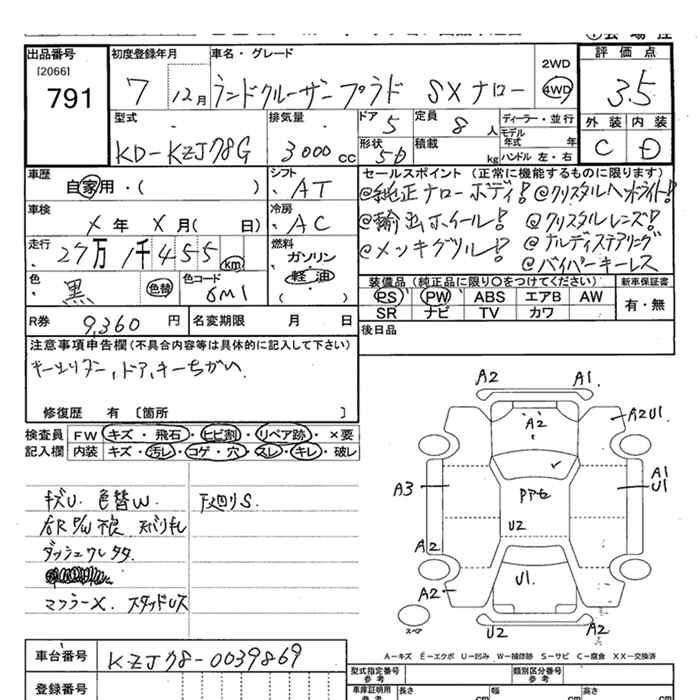 出品番号
[2066]
791
初度登録年月
7 12月
車名・グレード
ランドクルーザープラド SXナロー
2WD
4WD
評価点
3.5
外装 内装
C D
型式
KD-KZJ78G
排気量
3000cc
ドア 5
形状 5D
定員 8人
積載 kg
ディーラー・並行
モデル年式 年
ハンドル 左・右
車歴
自家用・( )
シフト
AT
車検
X年 X月( 日)
冷房
AC
走行
27万1千455km
燃料
ガソリン
軽油
( )
色
黒 色替
色コード
6M1
R券 9,360円
名変期限 月 日
セールスポイント (正常に機能するものに限ります)
@純正ナローボディ! @クリスタルヘッドライト!
@輸出ホイール! @クリスタルレンズ!
@メッキグリル! @ナルディステアリング
@バイパーキーレス
装備品 (純正品に限り○をつけてください)
PS PW ABS エアB AW
SR ナビ TV カワ
新車保証書
有・無
後日品
注意事項申告欄(不具合内容等は具体的に記入して下さい)
ドア,キーちがい
修復歴 有 〔箇所 〕
検査員
記入欄
FW キズ・飛石・ヒビ割・リペア跡・×要
内装 キズ・汚レ・コゲ・穴・スレ・キレ・破レ
キズU. 色替W. 下廻りS.
右R P/W不良
マフラーX. スタッドレス
A2 A1
A2
A2U1
A3
A1
U1
U2
A2
U1
A2
U2
A2
スペア
A-キズ E-エクボ U-凹み W-補修跡 S-サビ C-腐食 XX-交換済
車台番号
KZJ78-0039869
登録番号
型式指定番号
参考
類別区分番号
参考
車庫証明用
参考
長さ cm
幅 cm
高さ cm